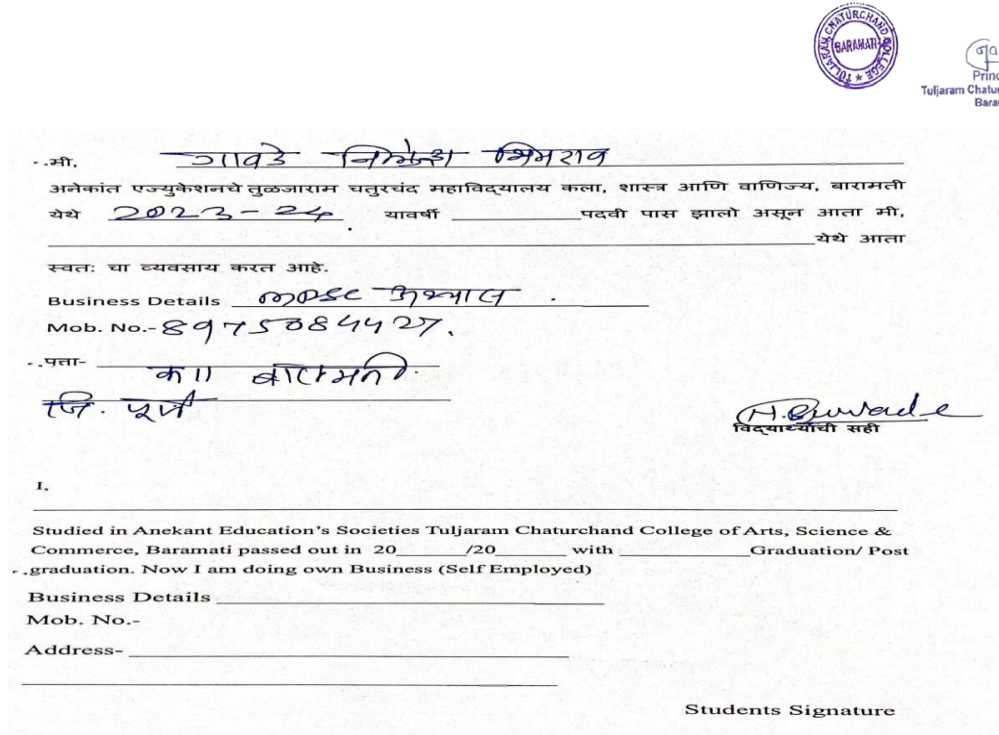 TULJARAM CHATURCHAND COLLEGE
BARAMATI
Princ
Tuljaram Chatu
Bara
मी, गावडे भिमराव
अनेकांत एज्युकेशनचे तुळजाराम चतुरचंद महाविद्यालय कला, शास्त्र आणि वाणिज्य, बारामती
येथे 2023-24 यावर्षी पदवी पास झालो असून आता मी,
येथे आता
स्वतः चा व्यवसाय करत आहे.
Business Details mpsc अभ्यास.
Mob. No.- 8975084427.
पत्ता-
बारामती
जि. पूणे
विद्यार्थ्याची सही
I,
Studied in Anekant Education's Societies Tuljaram Chaturchand College of Arts, Science &
Commerce, Baramati passed out in 20______/20______ with ____________Graduation/ Post
graduation. Now I am doing own Business (Self Employed)
Business Details
Mob. No.-
Address-
Students Signature